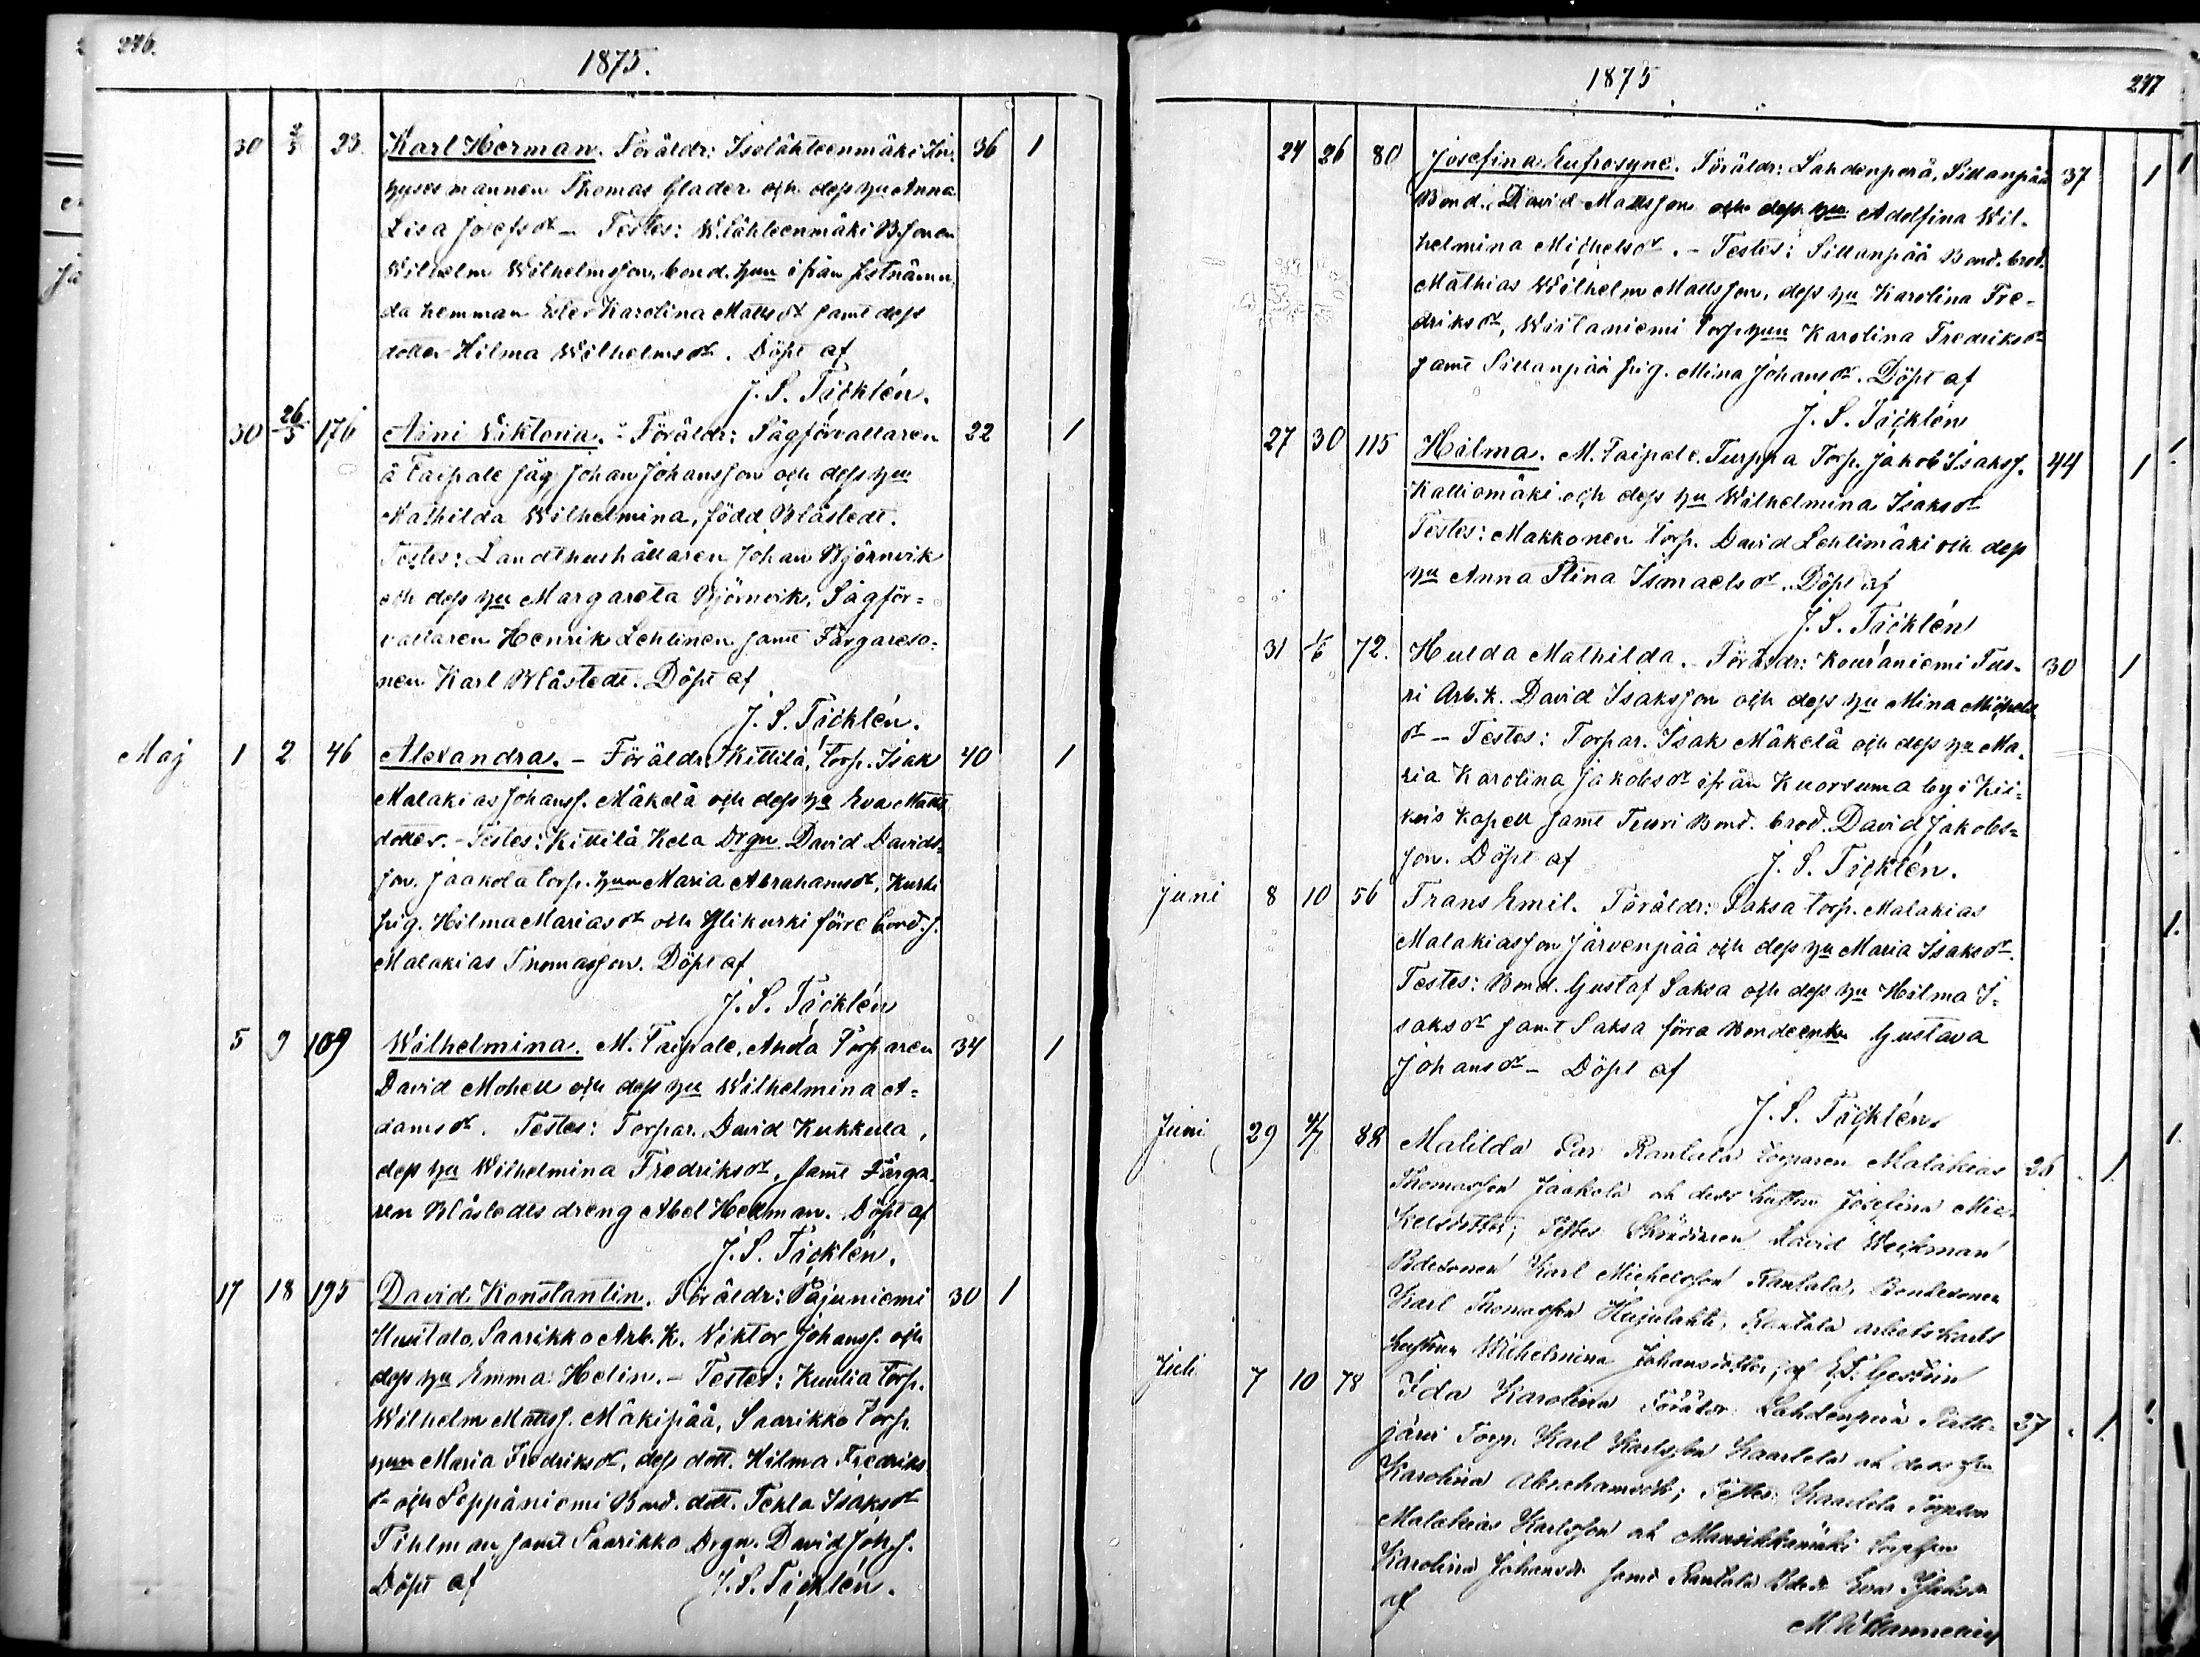 276.
1875.
30 2/5 23. Karl Herman. Föräldr: Isolähteenmäki In¬ 36 1
hyses mannen Thomas Glader och dess hu Anna
Lisa Josefsdr – Testes: W.lähteenmäki B.sonen
Wilhelm Wilhelmsson, bond. hun ifrån sistnämn
da hemman Ester Karolina Mattsdr samt dess
dotter Hilma Wilhelmsdr. Döpt af
J. S. Täcklén.
30 26/5 176 Aini Viktoria. – Föräldr: Sågförvaltaren 22 1
å Taipale såg Johan Johansson och dess hu
Mathilda Wilhelmina, född Blåstedt.
Testes: Landthushållaren Johan Björnvik
och dess hu Margareta Björnvik, Sågför=
valtaren Henrik Lehtinen samt Färgareso=
nen Karl Blåstedt. Döpt af
J. S. Täcklén.
Maj 1 2 46 Alexandra. – Föräldr: Kittilä, torp. Isak 40 1
Malakias Johanss. Mäkelä och dess hu Eva Matts
dotter. – Testes: Kittilä Kela Drgn David Davids=
son, Jaakola torp. hun Maria Abrahamsdr, Kurki
pig. Hilma Mariasdr och Ylikurki före bond. s.
Malakias Thomasson. Döpt af
J. S. Täcklén
5 9 109 Wilhelmina. M. Taipale, Anda Torparen 34 1
David Mohell och dess hu Wilhelmina A=
damsdr. Testes: Torpar. David Kukkula,
dess hu Wilhelmina Fredriksdr, samt Färga¬
ren Blåstedts dreng Abel Hellman. Döpt af
J. S. Täcklén.
17 18 195 David Konstantin. Föräldr: Pajuniemi 30 1
Uusitalo, Saarikko Arb. K. Viktor Johanss. och
dess hu Emma Helin. – Testes: Kuulia torp.
Wilhelm Mattss. Mäkipää, Saarikko Torp.
hun Maria Fredriksdr, dess dott. Hilma Fredriks
dr och Seppäniemi Bond. dott. Tekla Isaksdr
Tihlman samt Saarikko Drgn. David Joh. s.
Döpt af J. S. Täcklén.
1875
277
24 26 80 Josefina Eufrosyne. Föräldr: Lahdenperä, Sillanpää 37 1
Bond. David Mattsson och dess hu Adolfina Wil¬
helmina Michelsdr. – Testes: Sillanpää Bond. brod.
Mathias Wilhelm Mattsson, dess hu Karolina Fre¬
driksdr, Wiitaniemi torp. hun Karolina Fredriksdr
samt Sillanpää pig. Mina Johansdr. Döpt af
J. S. Täcklén
27 30 115 Hilma. M. Taipale, Turppa Torp. Jakob Isakss. 44 1
Kalliomäki och dess hu Wilhelmina Isaksdr
Testes: Makkonen torp. David Lehlimäki och dess
hu Anna Stina Ismaelsdr. Döpt af
J. S. Täcklén
31 1/6 72. Hulda Mathilda. Föräldr: Kouraniemi Tuu¬ 30 1
ri Arb. k. David Isaksson och dess hu Mina Michels
dr – Testes: Torpar. Isak Mäkelä och dess hu Ma¬
ria Karolina Jakobsdr ifrån Kuorsuma by i Kii=
kois Kapell samt Tuuri Bond. brod. David Jakobs=
son. Döpt af J. S. Täcklén.
Juni 8 10 56 Frans Emil. Föräldr: Saksa torp. Malakias
Malakiasson Järvenpää och dess hu Maria Isaksdr.
Testes: Bond. Gustaf Saksa och dess hu Hilma I=
saksdr samt Saksa förra Bondeenkn Gustava
Johansdr – Döpt af
J. S. Täcklén
Juni 29 4/7 88 Matilda Par Rantala torparen Malakias 26 1.
Thomasson Jaakola och dess hustru Josefina Mic¬
kelsdotter; Testes David Weckman
Bdesonen Karl Michelsson Rantala, Bondesonen
Karl Thomasson Hajulahti, Rantala arbetskarls
hustrun Wilhelmina Johansdotter; af
Juli 7 10 78 Ida Karolina Föräldr Lahdenperä 37 1.
järvi Torp. Karl Karlsson Kaartela och dess hu
Karolina Abrahamsdr; Testes: Kaartela
Malakias Karlsson och Mansikkamäki
Karolina Johansdr samt Rantala Eva
af